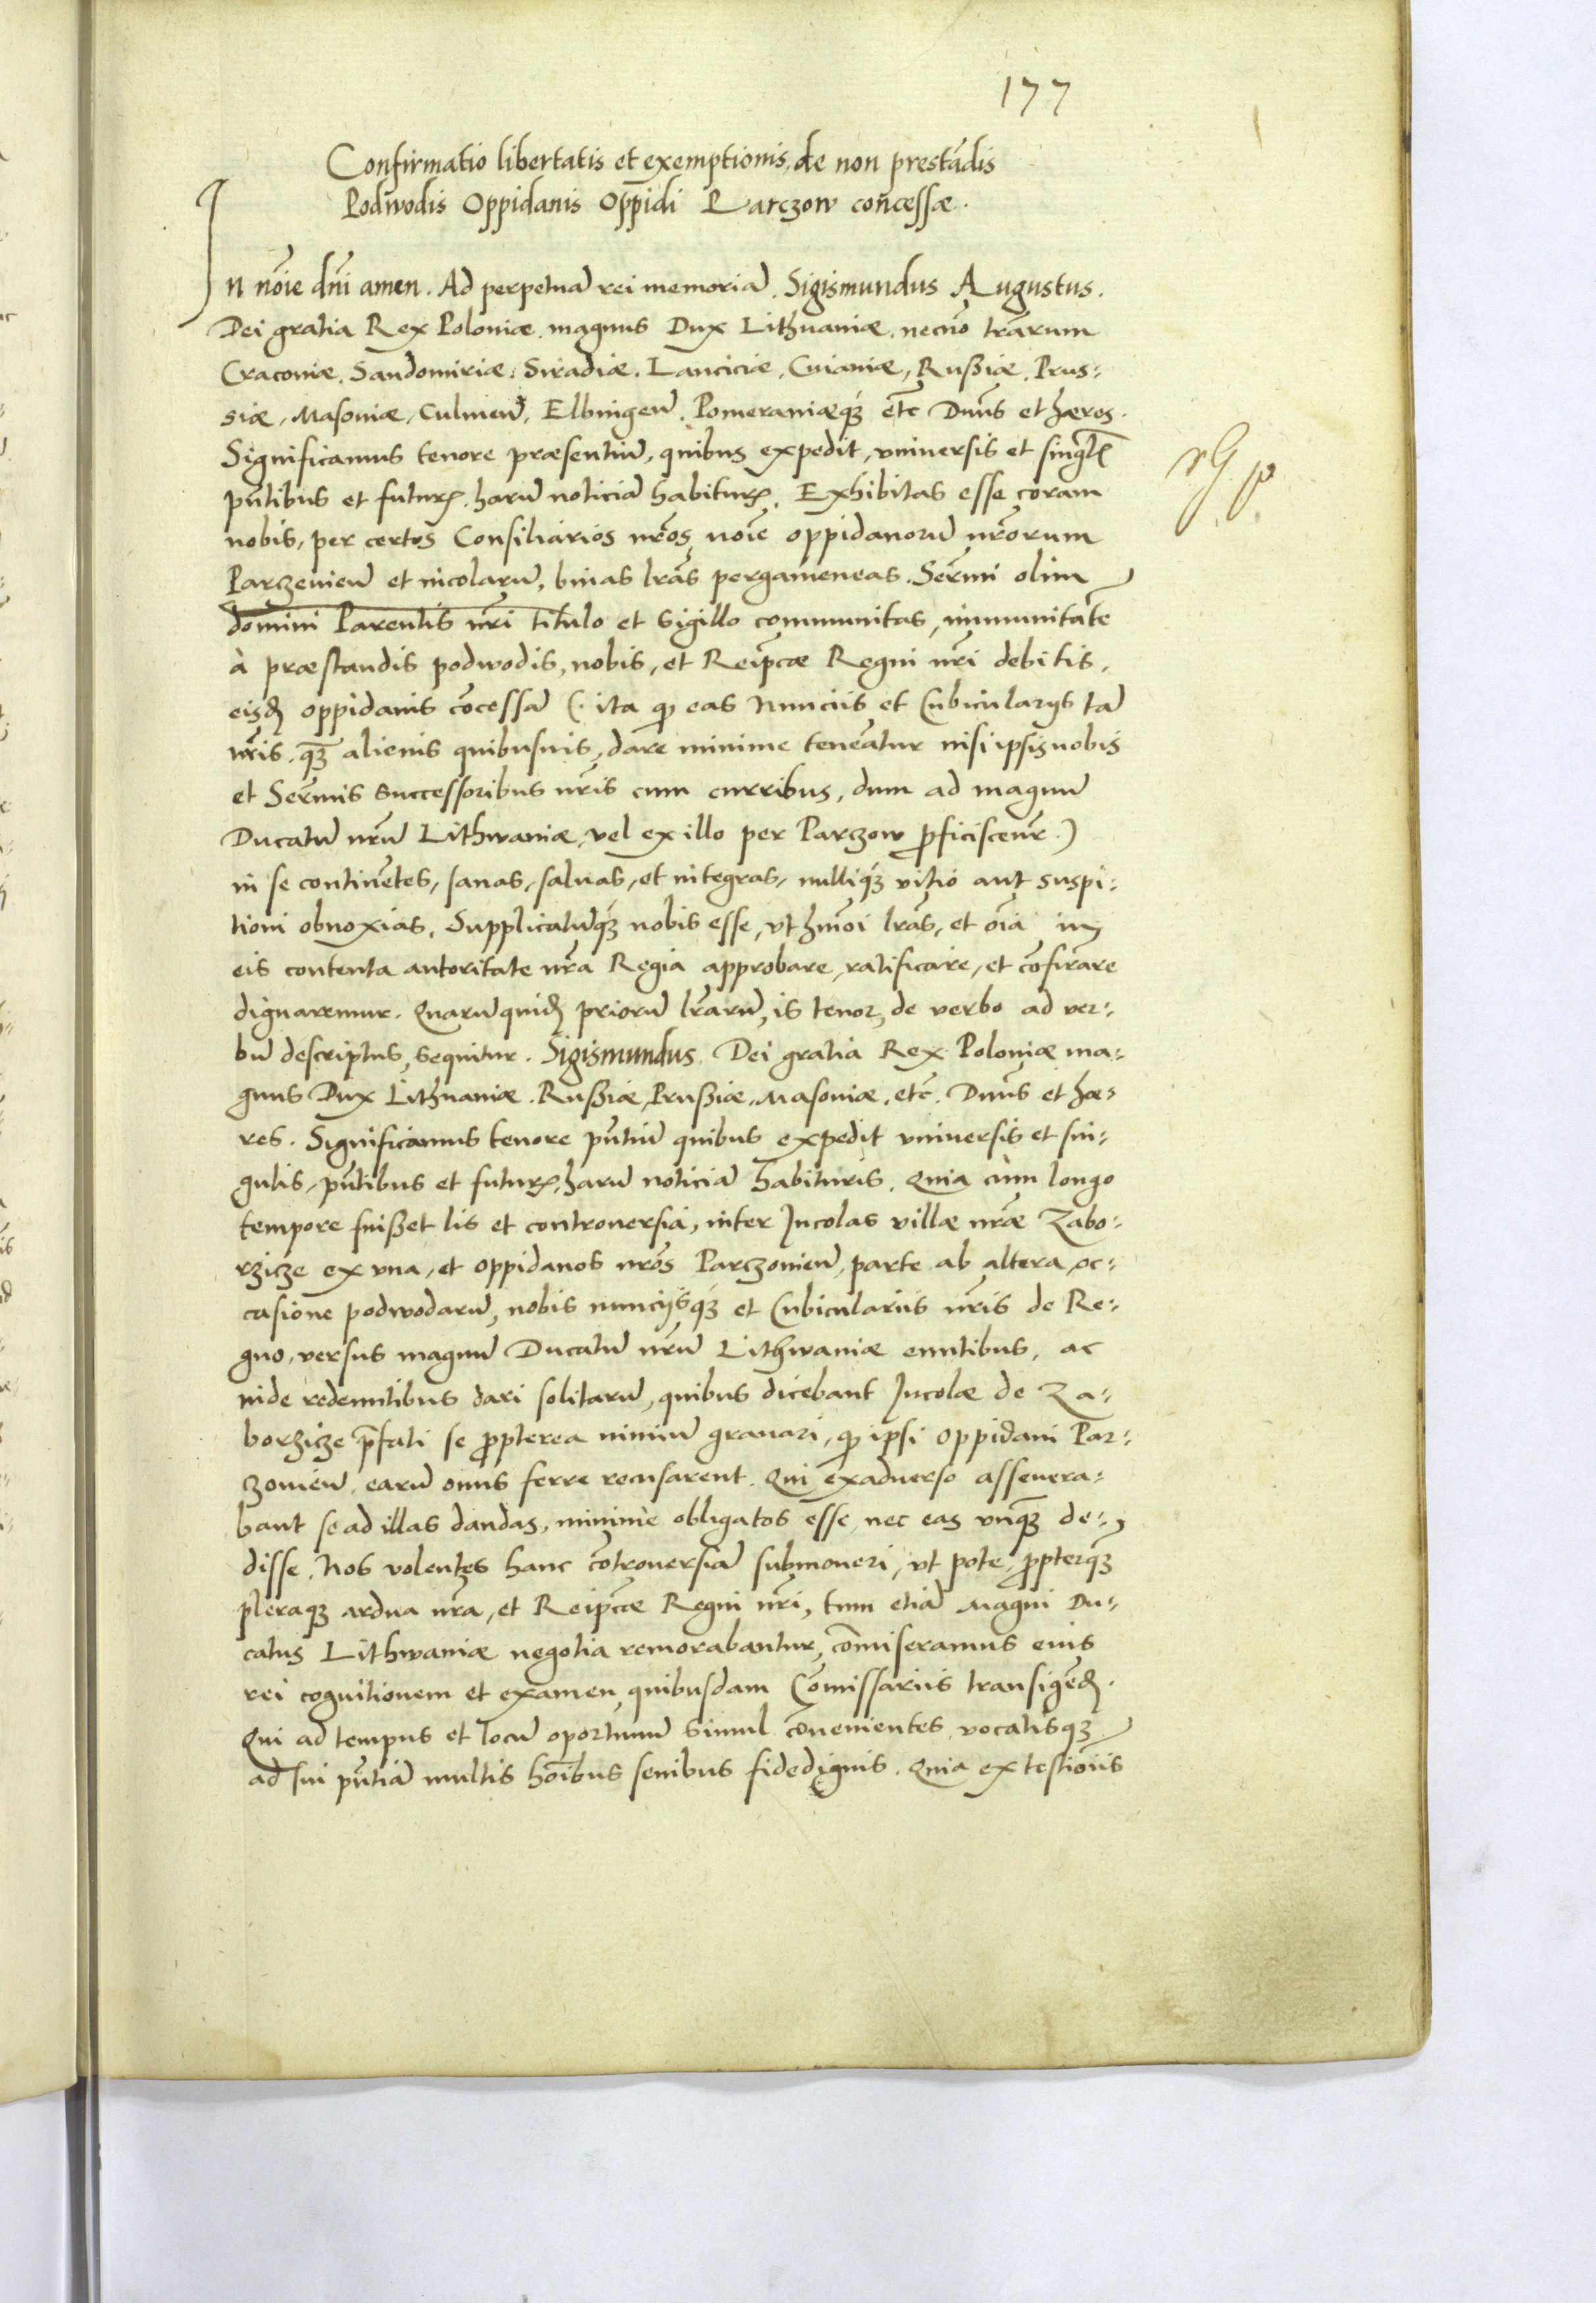 177
Confirmatio libertatis et exemptionis, de non prestādis
Podwodis Oppidanis Oppidi Parczow concessæ.
In nōie dn̄i amen. Ad perpetuā rei memoriā. Sigismundus Augustus.
Dei gratia Rex Poloniæ. magnus Dux Lithuaniæ. necnō tr̄arum
Cracoviæ. Sandomiriæ. Siradiæ. Lanciciæ. Cuiaviæ, Rußiæ. Prus-
siæ. Masoviæ, Culmeñ, Elbingeñ. Pomeraniæq₃ etc̄ Dnūs et hæres.
Significamus tenore præsentiū, quibus expedit, vniversis et singul̄
pn̄tibus et futurꝭ. harū noticiā habiturꝭ. Exhibitas esse coram
nobis, per certos Consiliarios nr̄os, noīe oppidanorū nr̄orum
Parzevieñ et incolarū, binas lrās pergameneas. Serm̄i olim
domini Parentis nr̄i titulo et sigillo communitas, immunitatē
à præstandis podwodis, nobis, et Reipcæ Regni nr̄i debitis,
eisdꝫ oppidanis cōcessā (. ita qꝫ eas Nunciis et Cubicularijs tā
nr̄is. qꝫ alienis quibusuis, dare minime teneātur nisi ipsis nobis
et Serm̄is successoribus nr̄is cum curribus, dum ad magnū
Ducatū nr̄ū Lithwaniæ, vel ex illo per Parczow ꝓficiscem̄r.)
in se continētes, sanas, saluas, et integras, nulliq₃ vitio aut suspi-
tioni obnoxias. Supplicatūq₃ nobis esse, vt hmōi lrās, et oīa in
eis contenta autoritate nr̄a Regia approbare, ratificare, et cōfir̄are
dignaremur. Quarū quidꝫ priorū lr̄arū, is tenor, de verbo ad ver-
bū descriptus, sequitur. Sigismundus Dei gratia Rex Poloniæ ma-
gnus Dux Lithuaniæ. Rußiæ, Prußiæ. Masoviæ, etc̄. Dnūs et hæ-
res. Significamus tenore pn̄tiū quibus expedit vniversis et sin-
gulis, pn̄tibus et futurꝭ, harū noticiā habituris. Quia cùm longo
tempore fuißet lis et controuersia, inter Incolas villæ nr̄æ Zabo-
rzicze ex vna, et oppidanos nr̄os Parczovieñ, parte ab altera, oc-
casione podwodarū, nobis nuncijsq₃ et Cubiculariis nr̄is de Re-
gno, versus magnū Ducatū nr̄ū Lithwaniæ euntibus, ac
inde redeuntibus dari solitarū, quibus dicebant Incolæ de Za-
borzicze p̄fati se ꝓpterea nimiū grauari, qꝫ ipsi oppidani Par-
zovieñ. earū onus ferre recusarent. Qui exaduerso assevera-
bant se ad illas dandas, minimè obligatos esse, nec eas vnqꝫ de-
disse. Nos volentes hanc cōtrouersiā submoueri, vt pote ꝓpterqꝫ
pleraqꝫ ardua nr̄a, et Reipcæ Regni nr̄i, tum etiā Magni Du-
catus Lithwaniæ negotia remorabantur, cōmiseramus euis
rei cognitionem et examen quibusdam Cōmissariis transigēdꝭ.
Qui ad tempus et locū oportunū simul cōuenientes, vocatisqꝫ
ad sui pn̄tiā multis hoībus senibus fidedignis. Quia ex testiōiis